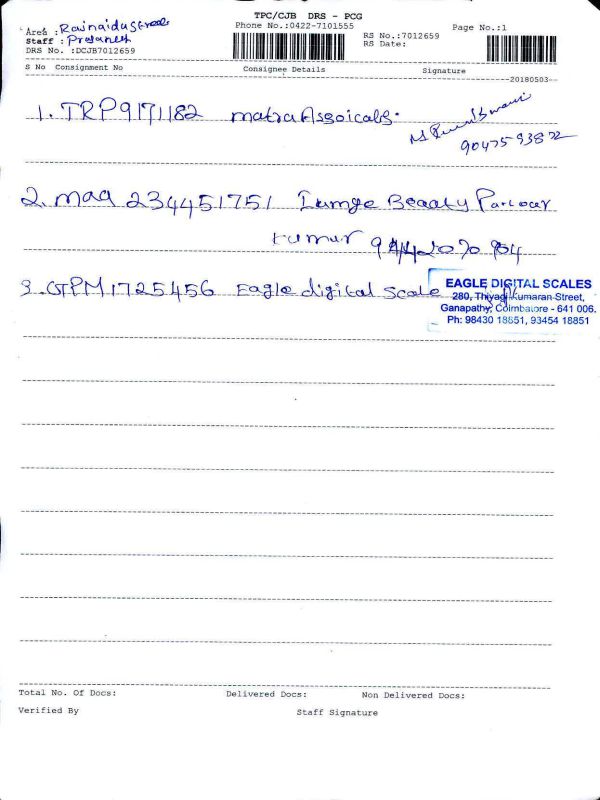 TPC/CJB DRS - PCG
Area : Rajnaidu Street
Phone No.:0422-7101555
Page No.:1
Staff : Prasanth
RS No.:7012659
DRS No. :DCJB7012659
RS Date:
S No Consignment No Consignee Details Signature
20180503
1. TRP9171182 Matra Assoicats.
90475 93872
2. maa 234451751 Iamge Beaaty Parlour
Kumar
3. GPM1725456 Eagle digital Scale
EAGLE DIGITAL SCALES
280, Thiyagi Kumaran Street,
Ganapathy, Coimbatore - 641 006.
Ph: 98430 18851, 93454 18851
Total No. Of Docs: Delivered Docs: Non Delivered Docs:
Verified By Staff Signature